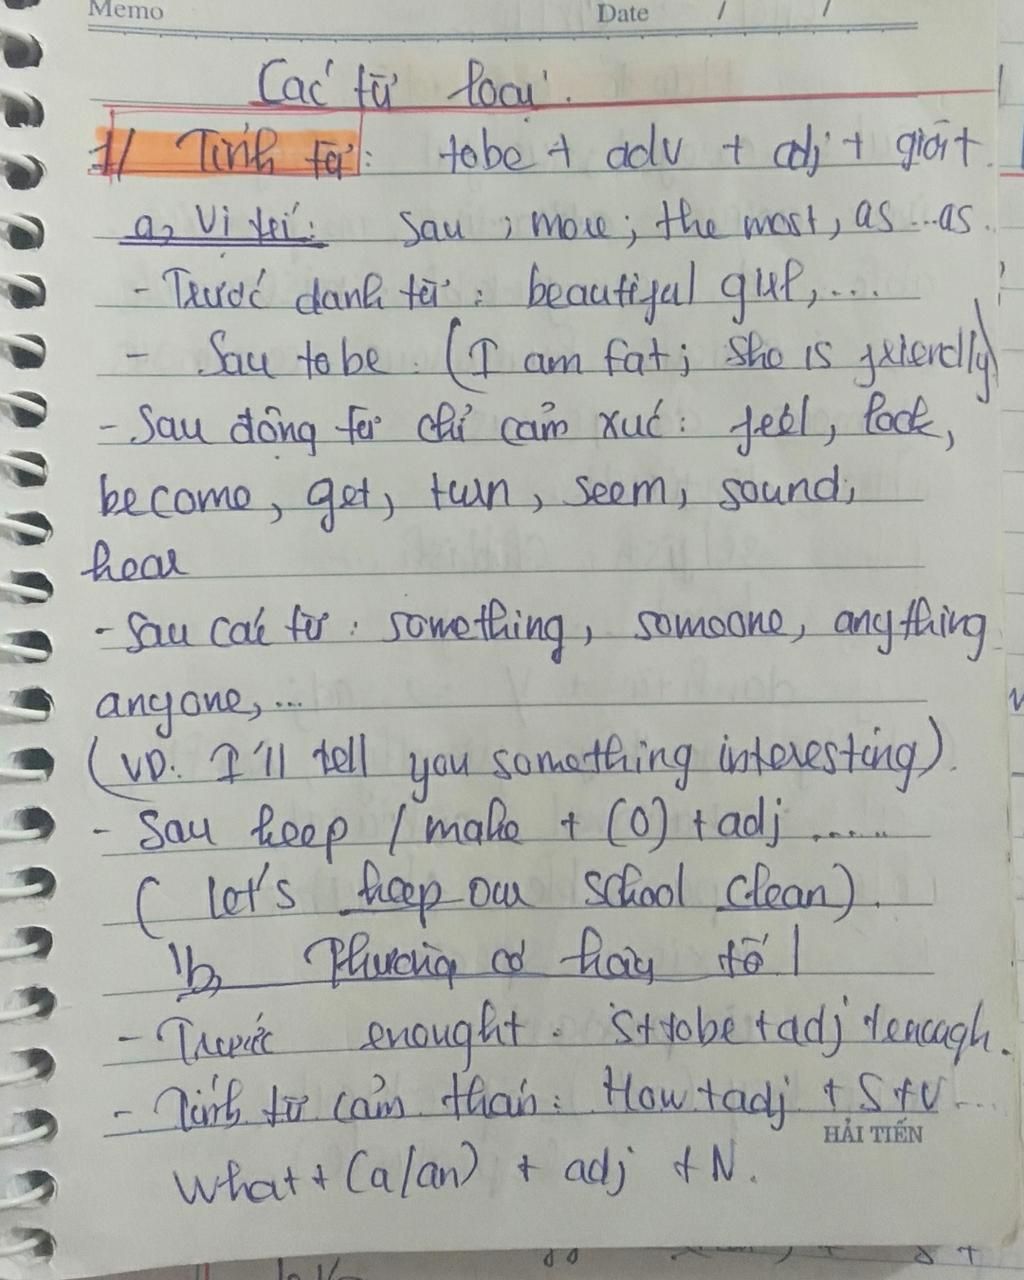 Memo Date / /
Các từ loại.
1/ Tính từ: tobe + adv + adj + giới t
a, Vị trí: Sau, more; the most, as ... as.
- Trước danh từ: beautiful girl, ...
- Sau to be. (I am fat; she is friendly)
- Sau động từ chỉ cảm xúc: feel, look,
become, get, turn, seem, sound,
hear
- Sau các từ: something, someone, anything
anyone, ...
(VD: I'll tell you something interesting).
- Sau keep / make + (O) + adj ......
( let's keep our school clean).
b,
- Trước enought. S+tobe+adj+enough.
- Tính từ cảm thán: How+adj + S+V...
HẢI TIẾN
What + (a/an) + adj + N.